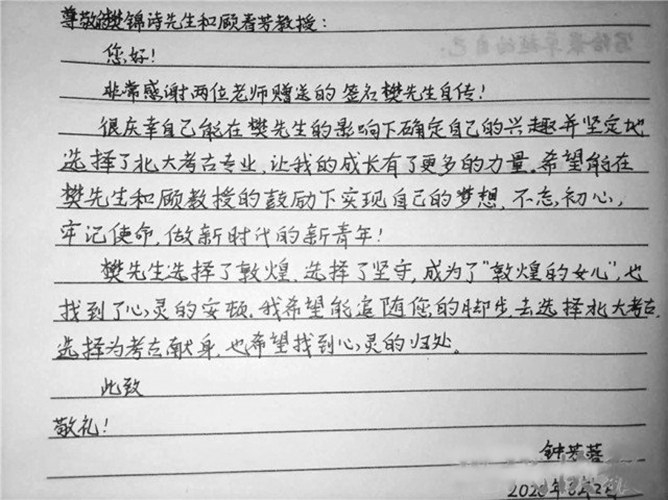 尊敬的樊锦诗先生和顾春芳教授:
您好!
非常感谢两位老师赠送的签名樊先生自传!
很庆幸自己能在樊先生的影响下确定自己的兴趣并坚定地
选择了北大考古专业,让我的成长有了更多的力量。希望能在
樊先生和顾教授的鼓励下实现自己的梦想,不忘初心,
牢记使命,做新时代的新青年!
樊先生选择了敦煌,选择了坚守,成为了“敦煌的女儿”,也
找到了心灵的安顿。我希望能追随您的脚步,去选择北大考古,
选择为考古献身,也希望找到心灵的归处。
此致
敬礼!
钟芳蓉